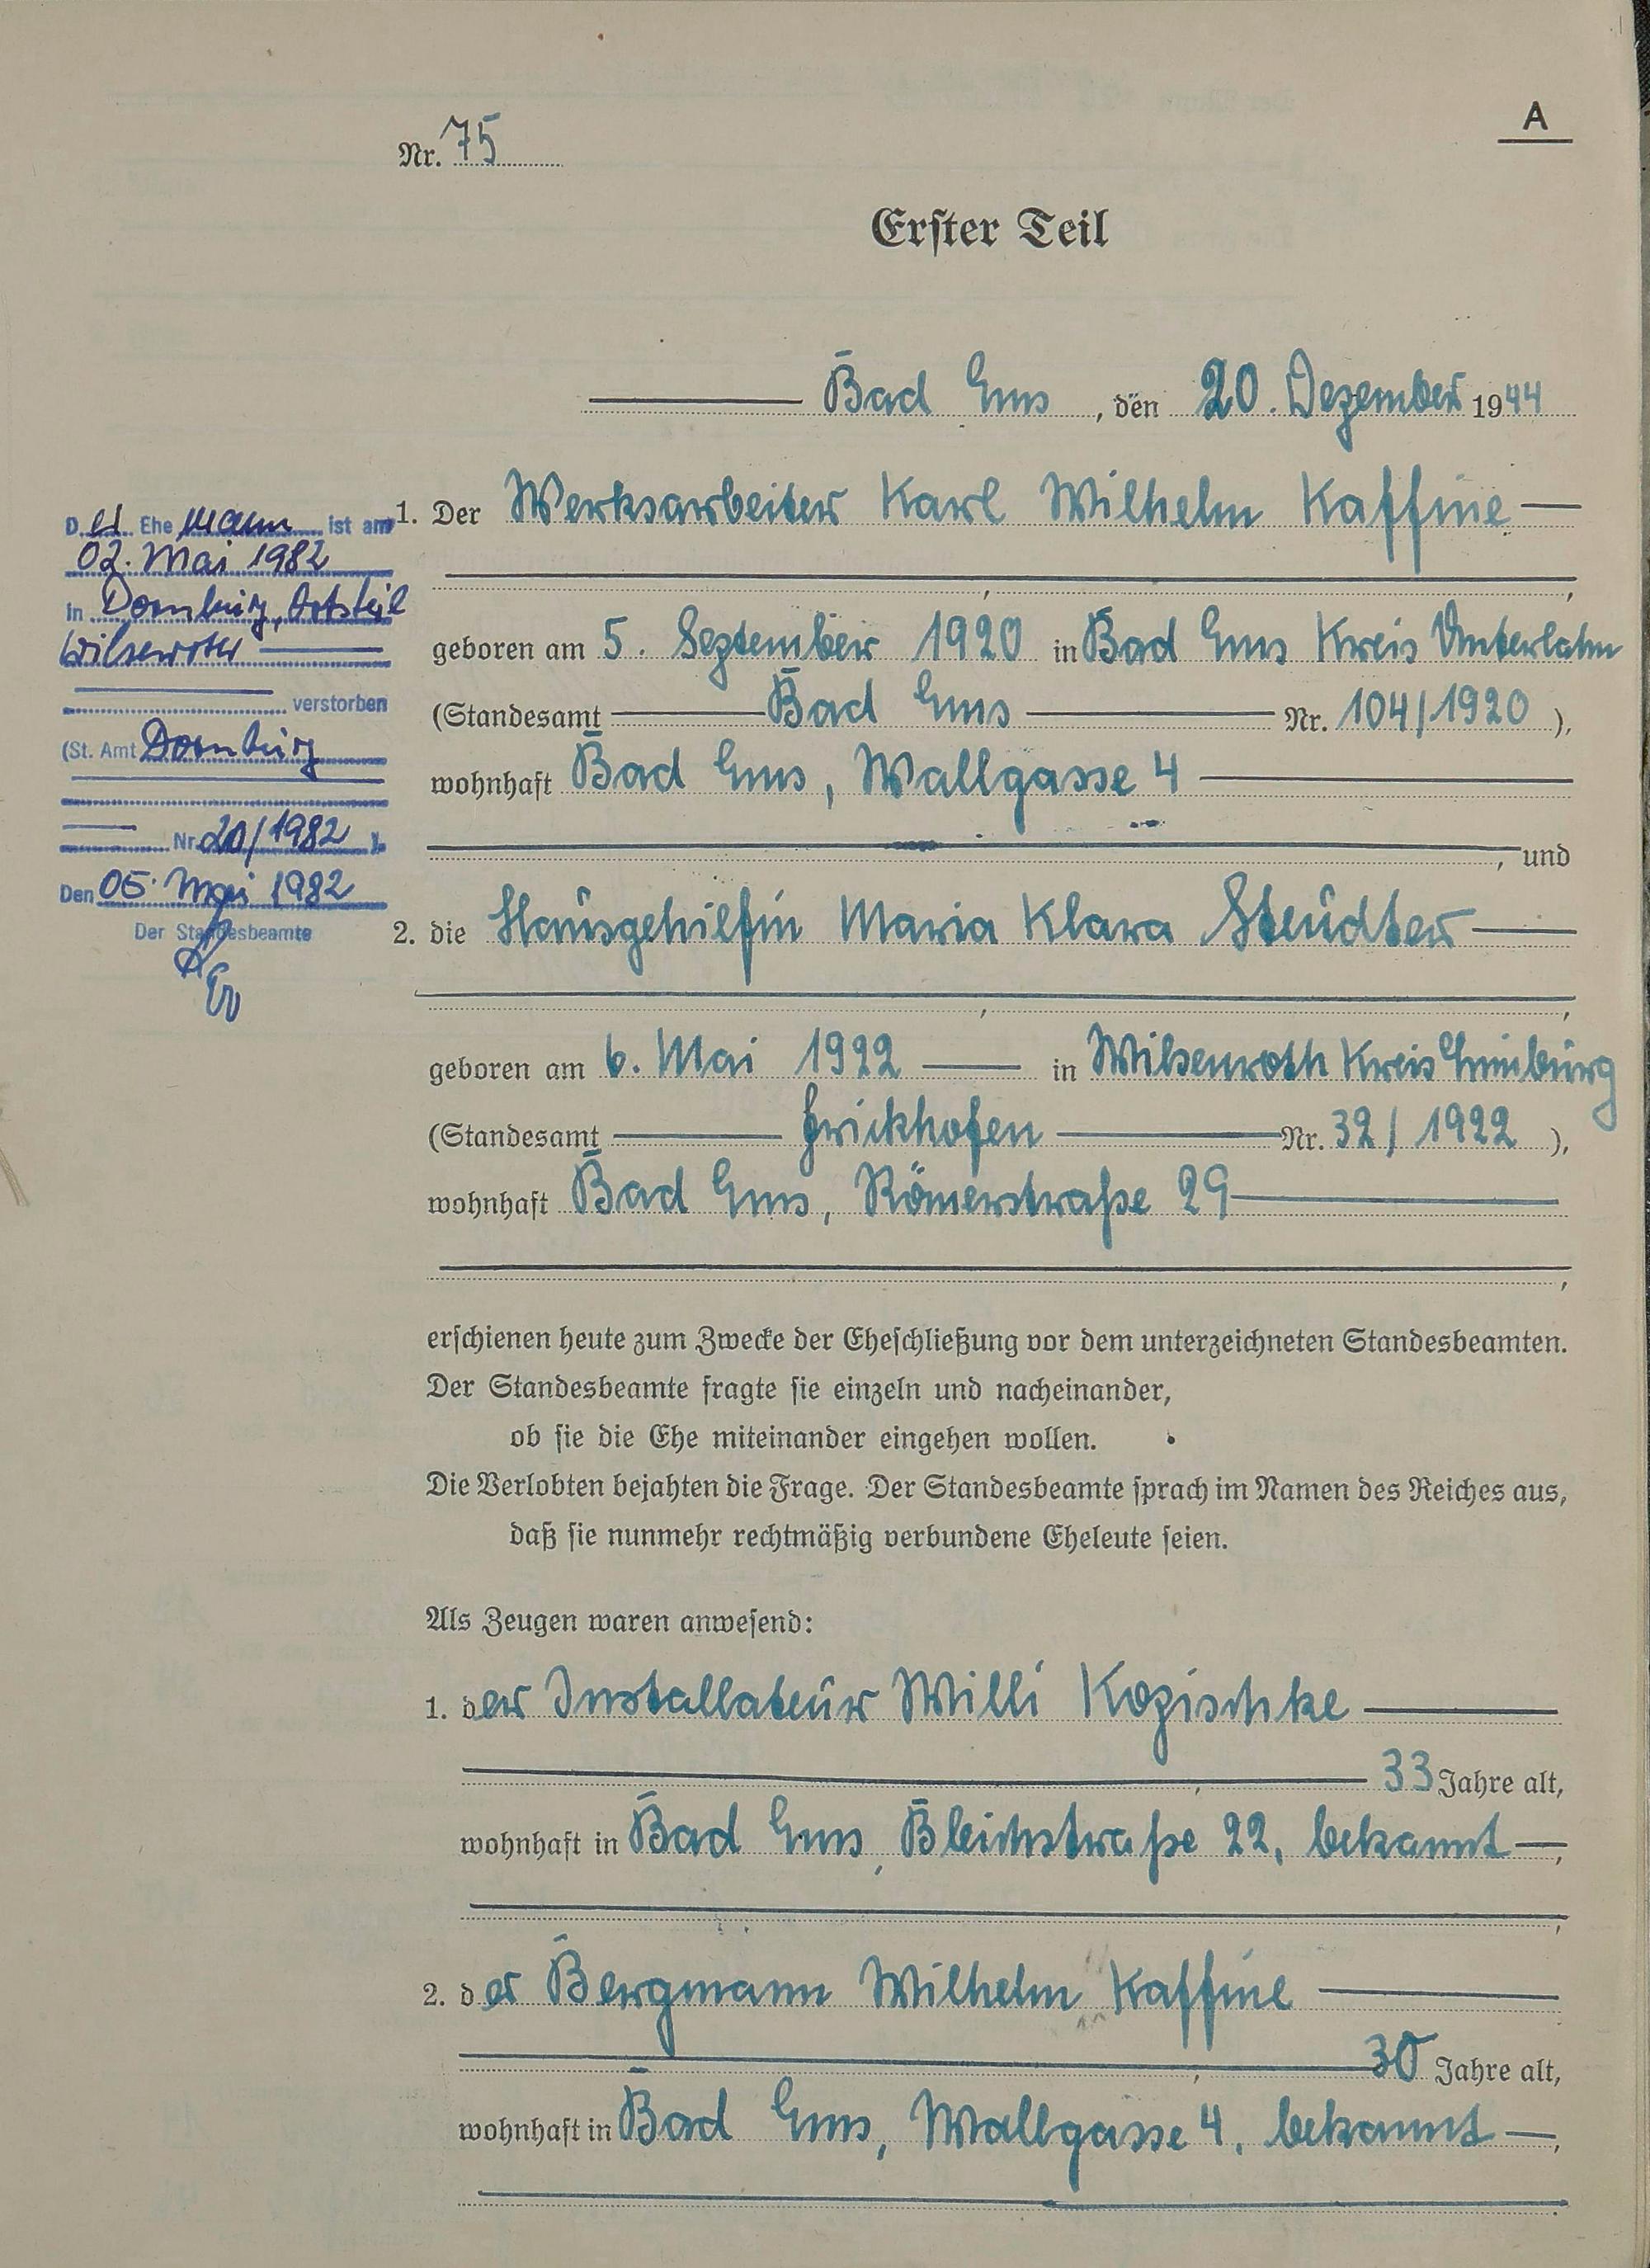 A
Nr. 75
Erster Teil
Bad Ems, den 20. Dezember 1944
1. Der Werksarbeiter Karl Wilhelm Kaffine
geboren am 5. September 1920 in Bad Ems Kreis Unterlahn
(Standesamt Bad Ems Nr. 104/1920),
wohnhaft Bad Ems, Wallgasse 4
, und
2. die Hausgehilfin Maria Klara Steudter
geboren am 6. Mai 1922 in Wilsenroth Kreis Limburg
(Standesamt Frickhofen Nr. 32/1922),
wohnhaft Bad Ems, Römerstraße 29
erschienen heute zum Zwecke der Eheschließung vor dem unterzeichneten Standesbeamten.
Der Standesbeamte fragte sie einzeln und nacheinander,
ob sie die Ehe miteinander eingehen wollen.
Die Verlobten bejahten die Frage. Der Standesbeamte sprach im Namen des Reiches aus,
daß sie nunmehr rechtmäßig verbundene Eheleute seien.
Als Zeugen waren anwesend:
1. der Installateur Willi Kozischke
33 Jahre alt,
wohnhaft in Bad Ems, Bleichstraße 22, bekannt,
2. der Bergmann Wilhelm Kaffine
30 Jahre alt,
wohnhaft in Bad Ems, Wallgasse 4, bekannt,
Der Ehemann ist am
02. Mai 1982
in Dornburg, Ortsteil
Wilsenroth
verstorben
(St. Amt Dornburg
Nr. 20/1982).
Den 05. Mai 1982
Der Standesbeamte